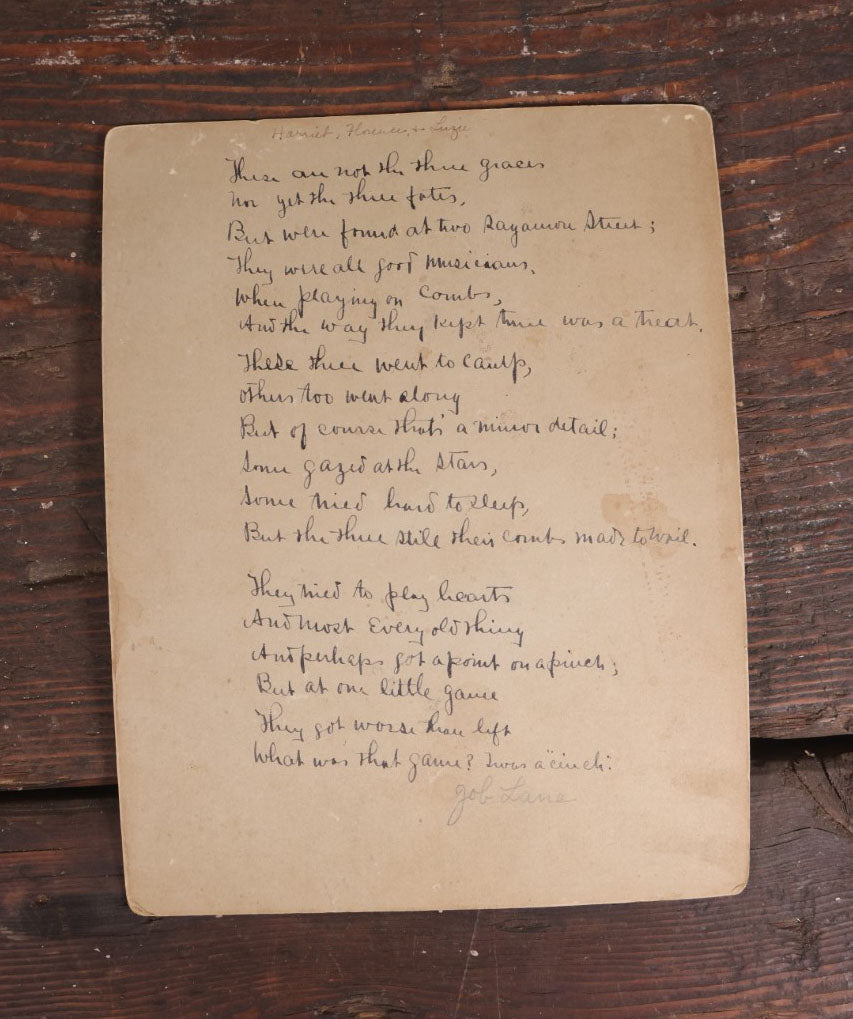 Harriet, Florence, & Luzie
These are not the three graces
Nor yet the three fates,
But were found at two Sagamore Street;
They were all good musicians,
When playing on Combs,
And the way they kept time was a treat.
These three went to Camp,
others too went along
But of course that's a minor detail;
Some gazed at the Stars,
Some tried hard to sleep,
But the three still their combs made to wail.
They tried to play hearts
And most Every old thing
And perhaps got a point on a pinch;
But at one little game
They got worse than left
What was that game? Twas a "cinch".
Job Lane